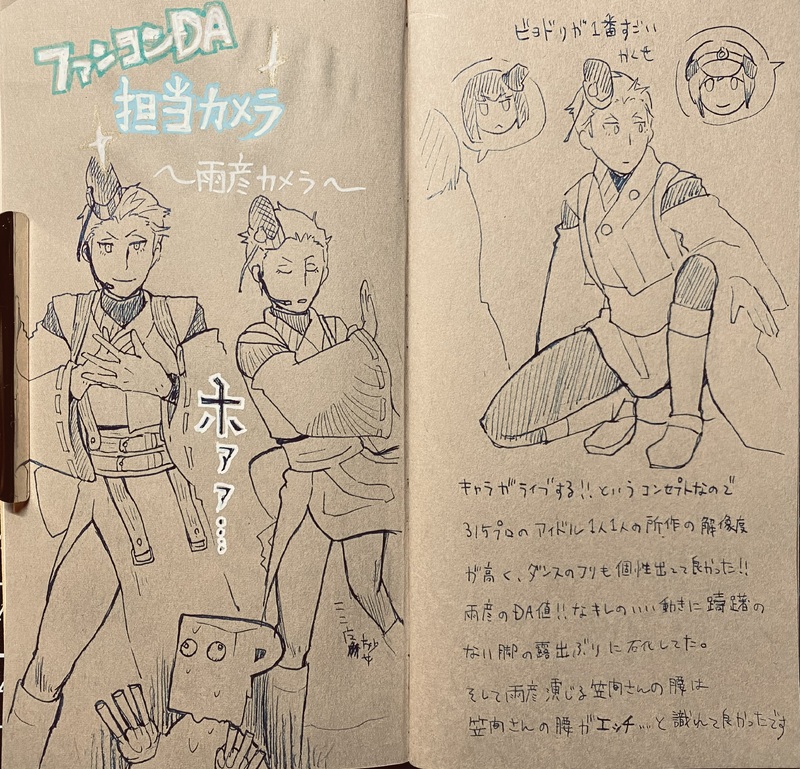 ファンヨンDA
担当カメラ
～雨彦カメラ～
ホァァ…
ビヨドリが1番すごい
かくせ
キャラがライブする!!というコンセプトなので
315プロのアイドル1人1人の所作の解像度
が高く、ダンスのフリも個性出てて良かった!!
雨彦のDA値!!なキレのいい動きに躊躇の
ない脚の露出ぶりに石化してた。
そして雨彦演じる笠間さんの腰は
笠間さんの腰がエッチ…と識れて良かったです